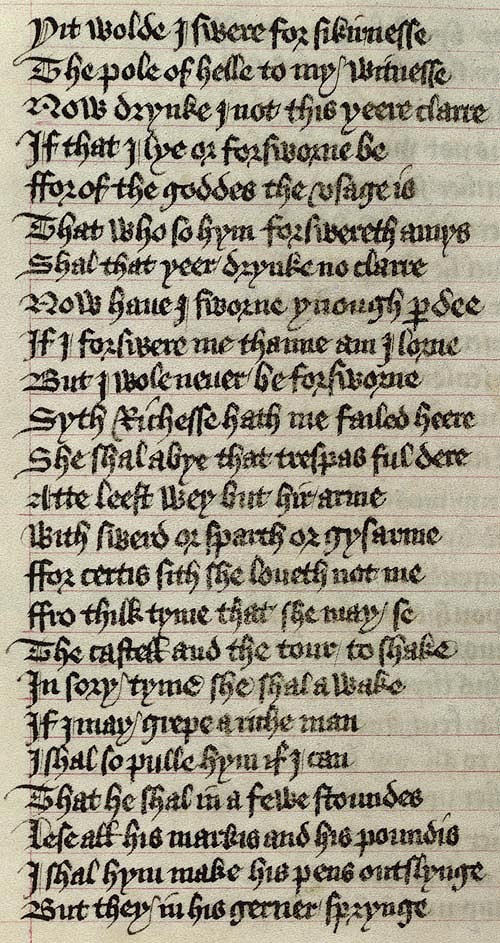 Yit wolde I swere for sikirnesse
The pole of helle to my / witnesse
Now drynke I not this yeere clarre
If that I lye or forsworne be
ffor of the goddes the vsage is
That who so hym forswereth amys
Shal that yeer drynke no clarre
Now haue I sworne ynough pdee
If I forswere me thanne am I lorne
But I wole neuer be forsworne
Syth Richesse hath me failed heere
She shal abye that trespas ful dere
Atte leest wey but hir arme
With swerd or sparth or gysarme
ffor certis sith she loueth not me
ffro thilk tyme that she may / se
The castell and the tour to shake
In sory / tyme she shal a wake
If I may / grepe a riche man
I shal so pulle hym if I can
That he shal in a fewe stoundes
Lese all his markis and his poundis
I shal hym make his pens outslynge
But they / in his gerner sprynge